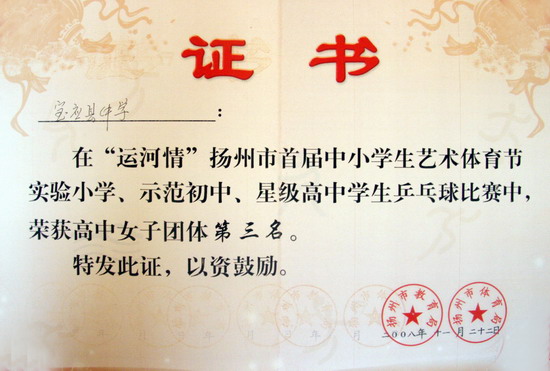 证书
宝应县中学：
在“运河情”扬州市首届中小学生艺术体育节
实验小学、示范初中、星级高中学生乒乓球比赛中，
荣获高中女子团体第三名。
特发此证，以资鼓励。
扬州市教育局
扬州市体育局
二00八年十一月二十二日